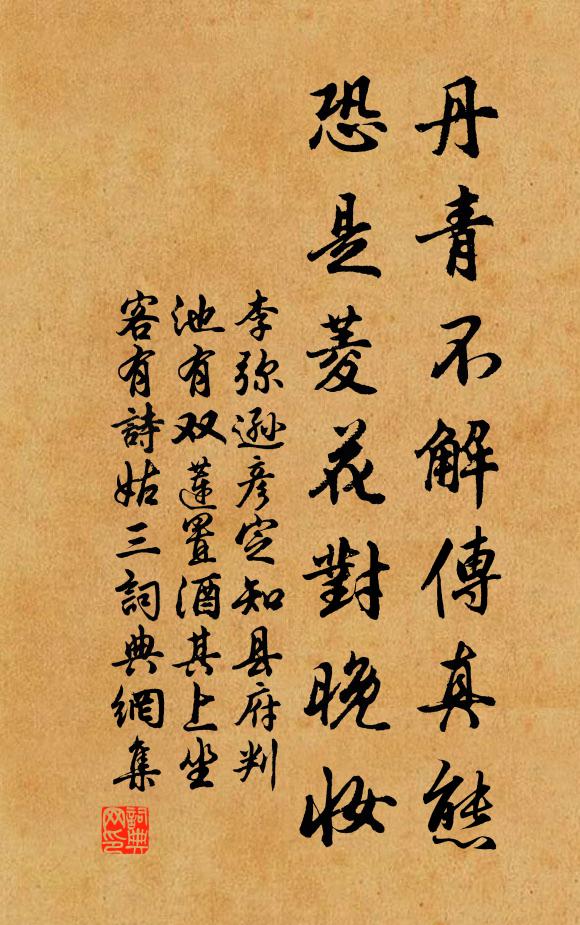 丹青不解傳真態
恐是菱花對晚妝
李弥遜彥定知县府判
池有双蓮置酒其上坐
客有詩姑三詞典網集
詞典网印